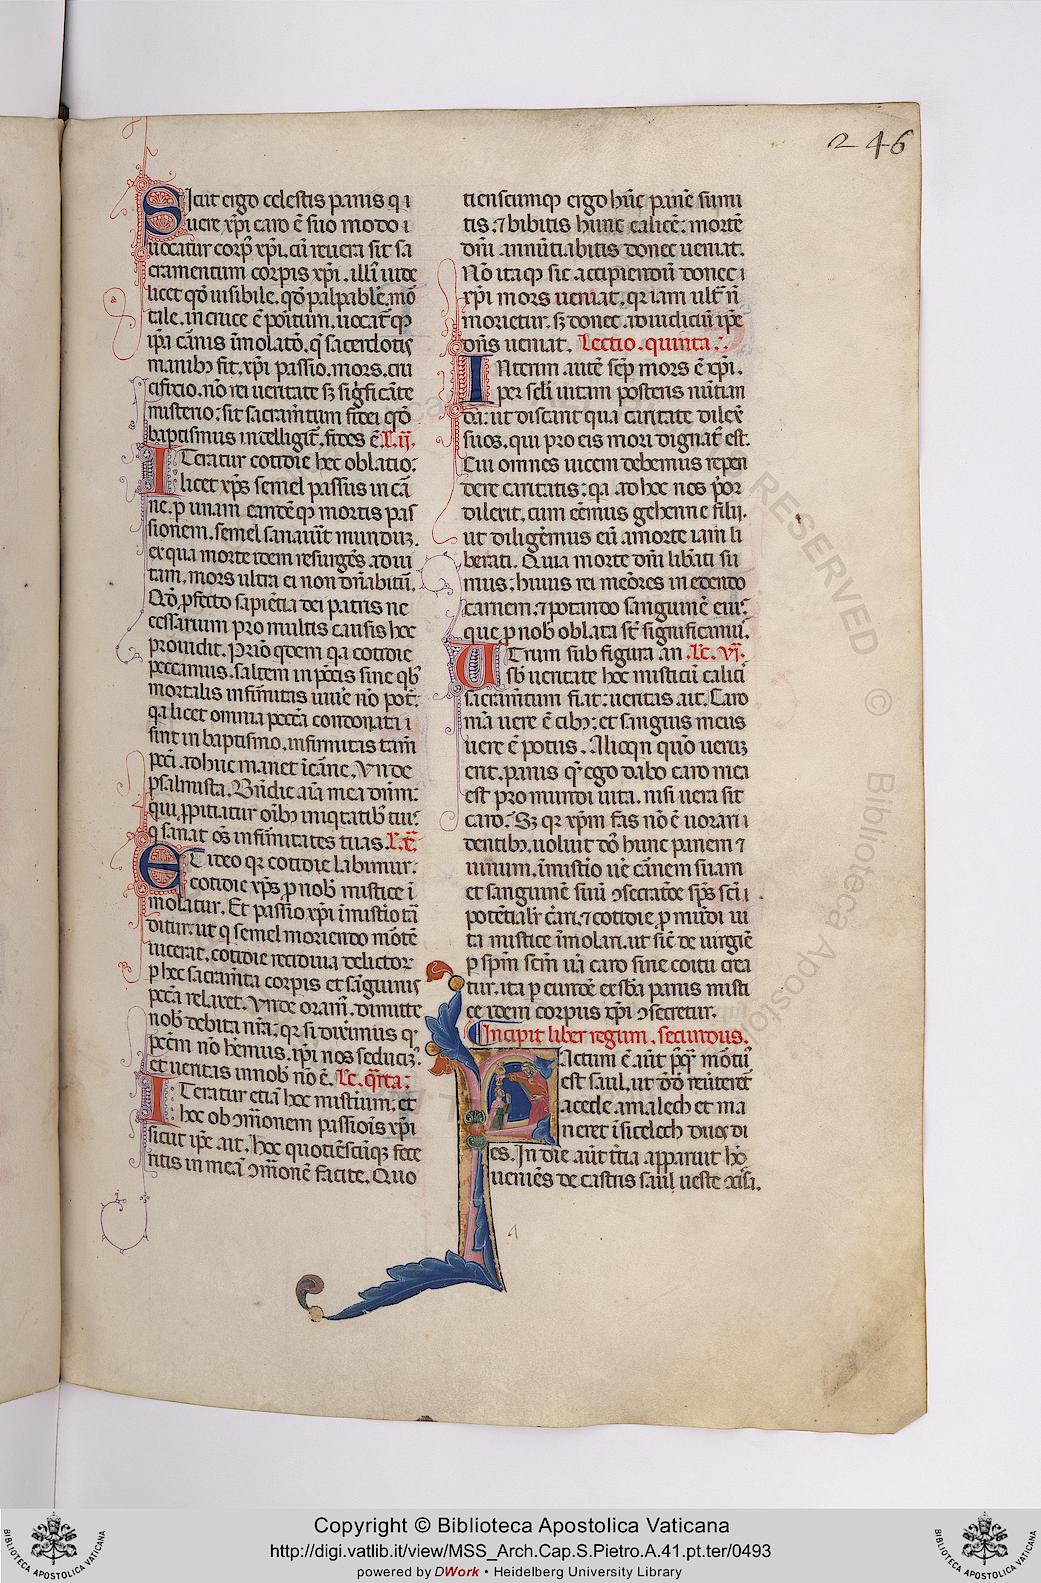 246
Sicut ergo celestis panis q i
uere xp̄i caro ē suo modo i
uocatur corp̄ xp̄i. cū reuera sit sa
cramentum corpis xp̄i. illī uide
licet qđ uisibile. qđ palpable. mō
tale. in cruce ē poitum. uocat̄ qꝫ
ip̄a cānis īmolatō. q̄ sacerdotis
manibꝫ fit. xp̄i passio. mors. cru
cifixio. nō rei ueritate sꝫ sigficāte
misterio: sic sacram̄tum fidei qđ
baptismus intelligit̄. fides ē. L. iij.
Iteratur cotidie hec oblatio:
licet xp̄s semel passus in ca
ne. ꝑ unam eandēqꝫ mortis pas
sionem. semel sanauit mundūꝫ.
ex qua morte idem resurgēs ad ui
tam. mors ultra ei non dn̄abitū.
Qđ ꝓfecto sapiētia dei patris ne
cessarium pro multis causis hoc
prouidit. Primo qdem qa cotidie
peccamus. saltem in pccīs sine qbꝫ
mortalis infirmitas uiuē nō pot̄.
qa licet omnia pccā condonata i
sint in baptismo. infirmitas tam̄
pccī adhuc manet ī carne. Vnde
psalmista. Bn̄dic aīa mea dnm̄.
qui ꝓpitiatur oībꝫ iniqtatibꝫ tuis
q sanat oēs infirmitates tuas. L. x̄.
Et ideo qꝛ cotidie labimur:
cotidie xp̄s ꝑ nobꝫ mistice ī
molatur. Et passio xp̄i ī mistio tā
ditur. ut q semel moriendo mōtē
uicerat. cotidie recidiua delictoꝝ
ꝑ hec sacram̄ta corpis et sanguinis
pccā relaxet. Vnde oram̄. dimitte
nobꝫ debita nr̄a. qꝛ si dixim̄us q̄
pccm̄ nō hemus. ip̄i nos seducimꝫ.
et ueritas in nobꝫ nō ē. Lc. q̄rta:
Iteratur etiā hoc misterium. et
hoc ob ↄm̄onem passiois xp̄i
sicut ip̄e ait. Hoc quotiēscūqꝫ fece
ritis in meā ↄm̄onē facite. Quo
tienscumqꝫ ergo hūc panē sumi
tis. ⁊ bibitis hunc calicē: mortē
dn̄i annūtiabitis donec ueniat.
Nō itaqꝫ sic accipiendū donec i
xp̄i mors ueniat. qꝛ iam ult̄ n̄
morietur. sꝫ donec ad iudiciū ip̄e
dn̄s ueniat. Lectio. quinta.
Interim autē sep̄ mors ē xp̄i.
per scl̄i uitam posteris nūtian
da. ut discant qua caritate dilex̄
suos. qui pro eis mori dignat̄ est.
Cui omnes uicem debemus repen
dere caritatis: qa ad hoc nos p̄or
dilexit. cum eēmus gehenne filij.
ut diligēmus eū a morte iam li
berati. Quia morte dn̄i libāti su
mus: huius rei mēores in edendo
carnem. ⁊ potando sanguinē eius
que ꝑ nobꝫ oblata st̄ significamꝰ.
Utrum sub figura an Lc. vj.
sbꝫ ueritate hoc misticū calicis
sacram̄tum fiat: ueritas ait. Caro
mīa uere ē cibꝫ: et sanguis meus
uere ē potus. Alioqn quō uerūꝫ
erit. panis q̄ ego dabo caro mea
est pro mundi uita. nisi uera sit
caro. Sꝫ qꝛ xp̄m fas nō ē uorari
dentibꝫ. uoluit đō hunc panem ⁊
uinum. ī mistio uē cānem suam
et sanguinē suū ↄsecratōe sp̄s sc̄i i
potētialit̄ c̄ari. ⁊ cotidie ꝑ mūdi ui
ta mistice īmolari. ut sic̄ de uirgīe
ꝑ sp̄m sc̄m uā caro sine coitu crea
tur. ita ꝑ eundē ex sbā panis misti
ce idem corpus xp̄i ↄsecretur.
Incipit liber regum. secundus.
Factum ē aūt pꝰqꝫ mōtuꝰ
est saul. ut dđ reuertet̄
a cede amalech et ma
neret ī sicelech duos di
es. In die aūt tīa apparuit hō
ueniēs de castris saul ueste xisa.
RESERVED © Biblioteca Apostolica
Copyright © Biblioteca Apostolica Vaticana
http://digi.vatlib.it/view/MSS_Arch.Cap.S.Pietro.A.41.pt.ter/0493
powered by DWork • Heidelberg University Library
BIBLIOTECA APOSTOLICA VATICANA
BIBLIOTECA APOSTOLICA VATICANA